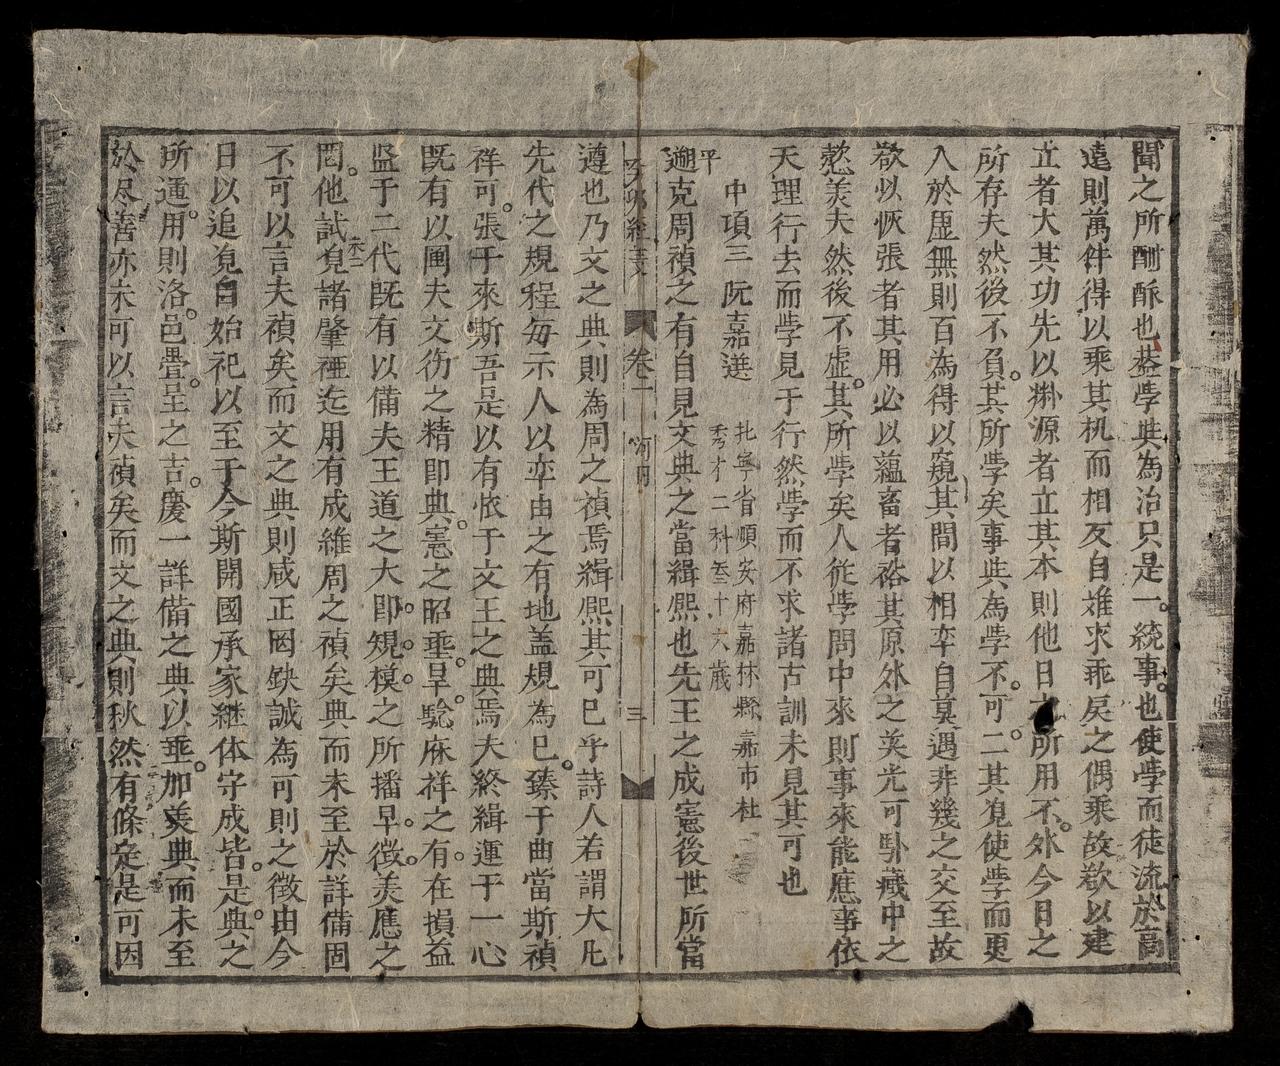 聞之所酬酢也葢學與為治只是一統事也使學而徒流於高
遠則萬件得以乘其机而相反自难求乖戾之偶乘故欲以建
立者大其功先以掛源者立其本則他日之所用不外今日之
所存夫然後不負其所學矣事與為學不可二其覓使學而更
入於虛無則百為得以窺其間以相率自莫遇非幾之交至故
欲以恢張者其用必以蘊畜者裕其原外之英光可卧藏中之
懿美夫然後不虛其所學矣人從學問中來則事來能應事依
天理行去而學見于行然學而不求諸古訓未見其可也
平 中項三 阮嘉選
北寧省順安府嘉林縣嘉市杜
秀才二科叁十六歲
遡克周禎之有自見文典之當緝熙也先王之成憲後世所當
卷二 河內 三
遵也乃文之典則為周之禎焉緝熙其可已乎詩人若謂大凡
先代之規程每示人以率由之有地盖規為已臻于曲當斯禎
祥可張于來斯吾是以有依于文王之典焉夫終緝運于一心
既有以闡夫文衍之精即典憲之昭垂早驗庥祥之有在損益
监于二代既有以備夫王道之大即規模之所播早徵美應之
罔他試覓諸肇禋迄用有成維周之禎矣典而未至於詳備固
不可以言夫禎矣而文之典則咸正罔缺誠為可則之徵由今
日以追覓自始祀以至于今斯開國承家继体守成皆是典之
所通用則洛邑疊呈之吉慶一詳備之典以垂加美典而未至
於尽善亦未可以言夫禎矣而文之典則秋然有條定是可因